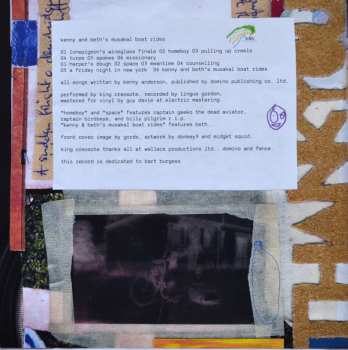 kenny and beth's musakal boat rides
01 lonepigeon's wineglass finale 02 homeboy 03 pulling up creels
04 turps 05 spokes 06 missionary
01 harper's dough 02 space 03 meantime 04 counselling
05 a friday night in new york 06 kenny and beth's musakal boat rides
all songs written by kenny anderson, published by domino publishing co. ltd.
performed by king creosote. recorded by lingus gordon.
mastered for vinyl by guy davie at electric mastering.
"homeboy" and "space" features captain geeko the dead aviator,
captain birdseye, and billy pilgrim r.i.p.
"kenny & beth's musakal boat rides" features beth.
front cover image by gordy. artwork by donkey9 and midget squid.
king creosote thanks all at wallace productions ltd., domino and fence.
this record is dedicated to bert burgess